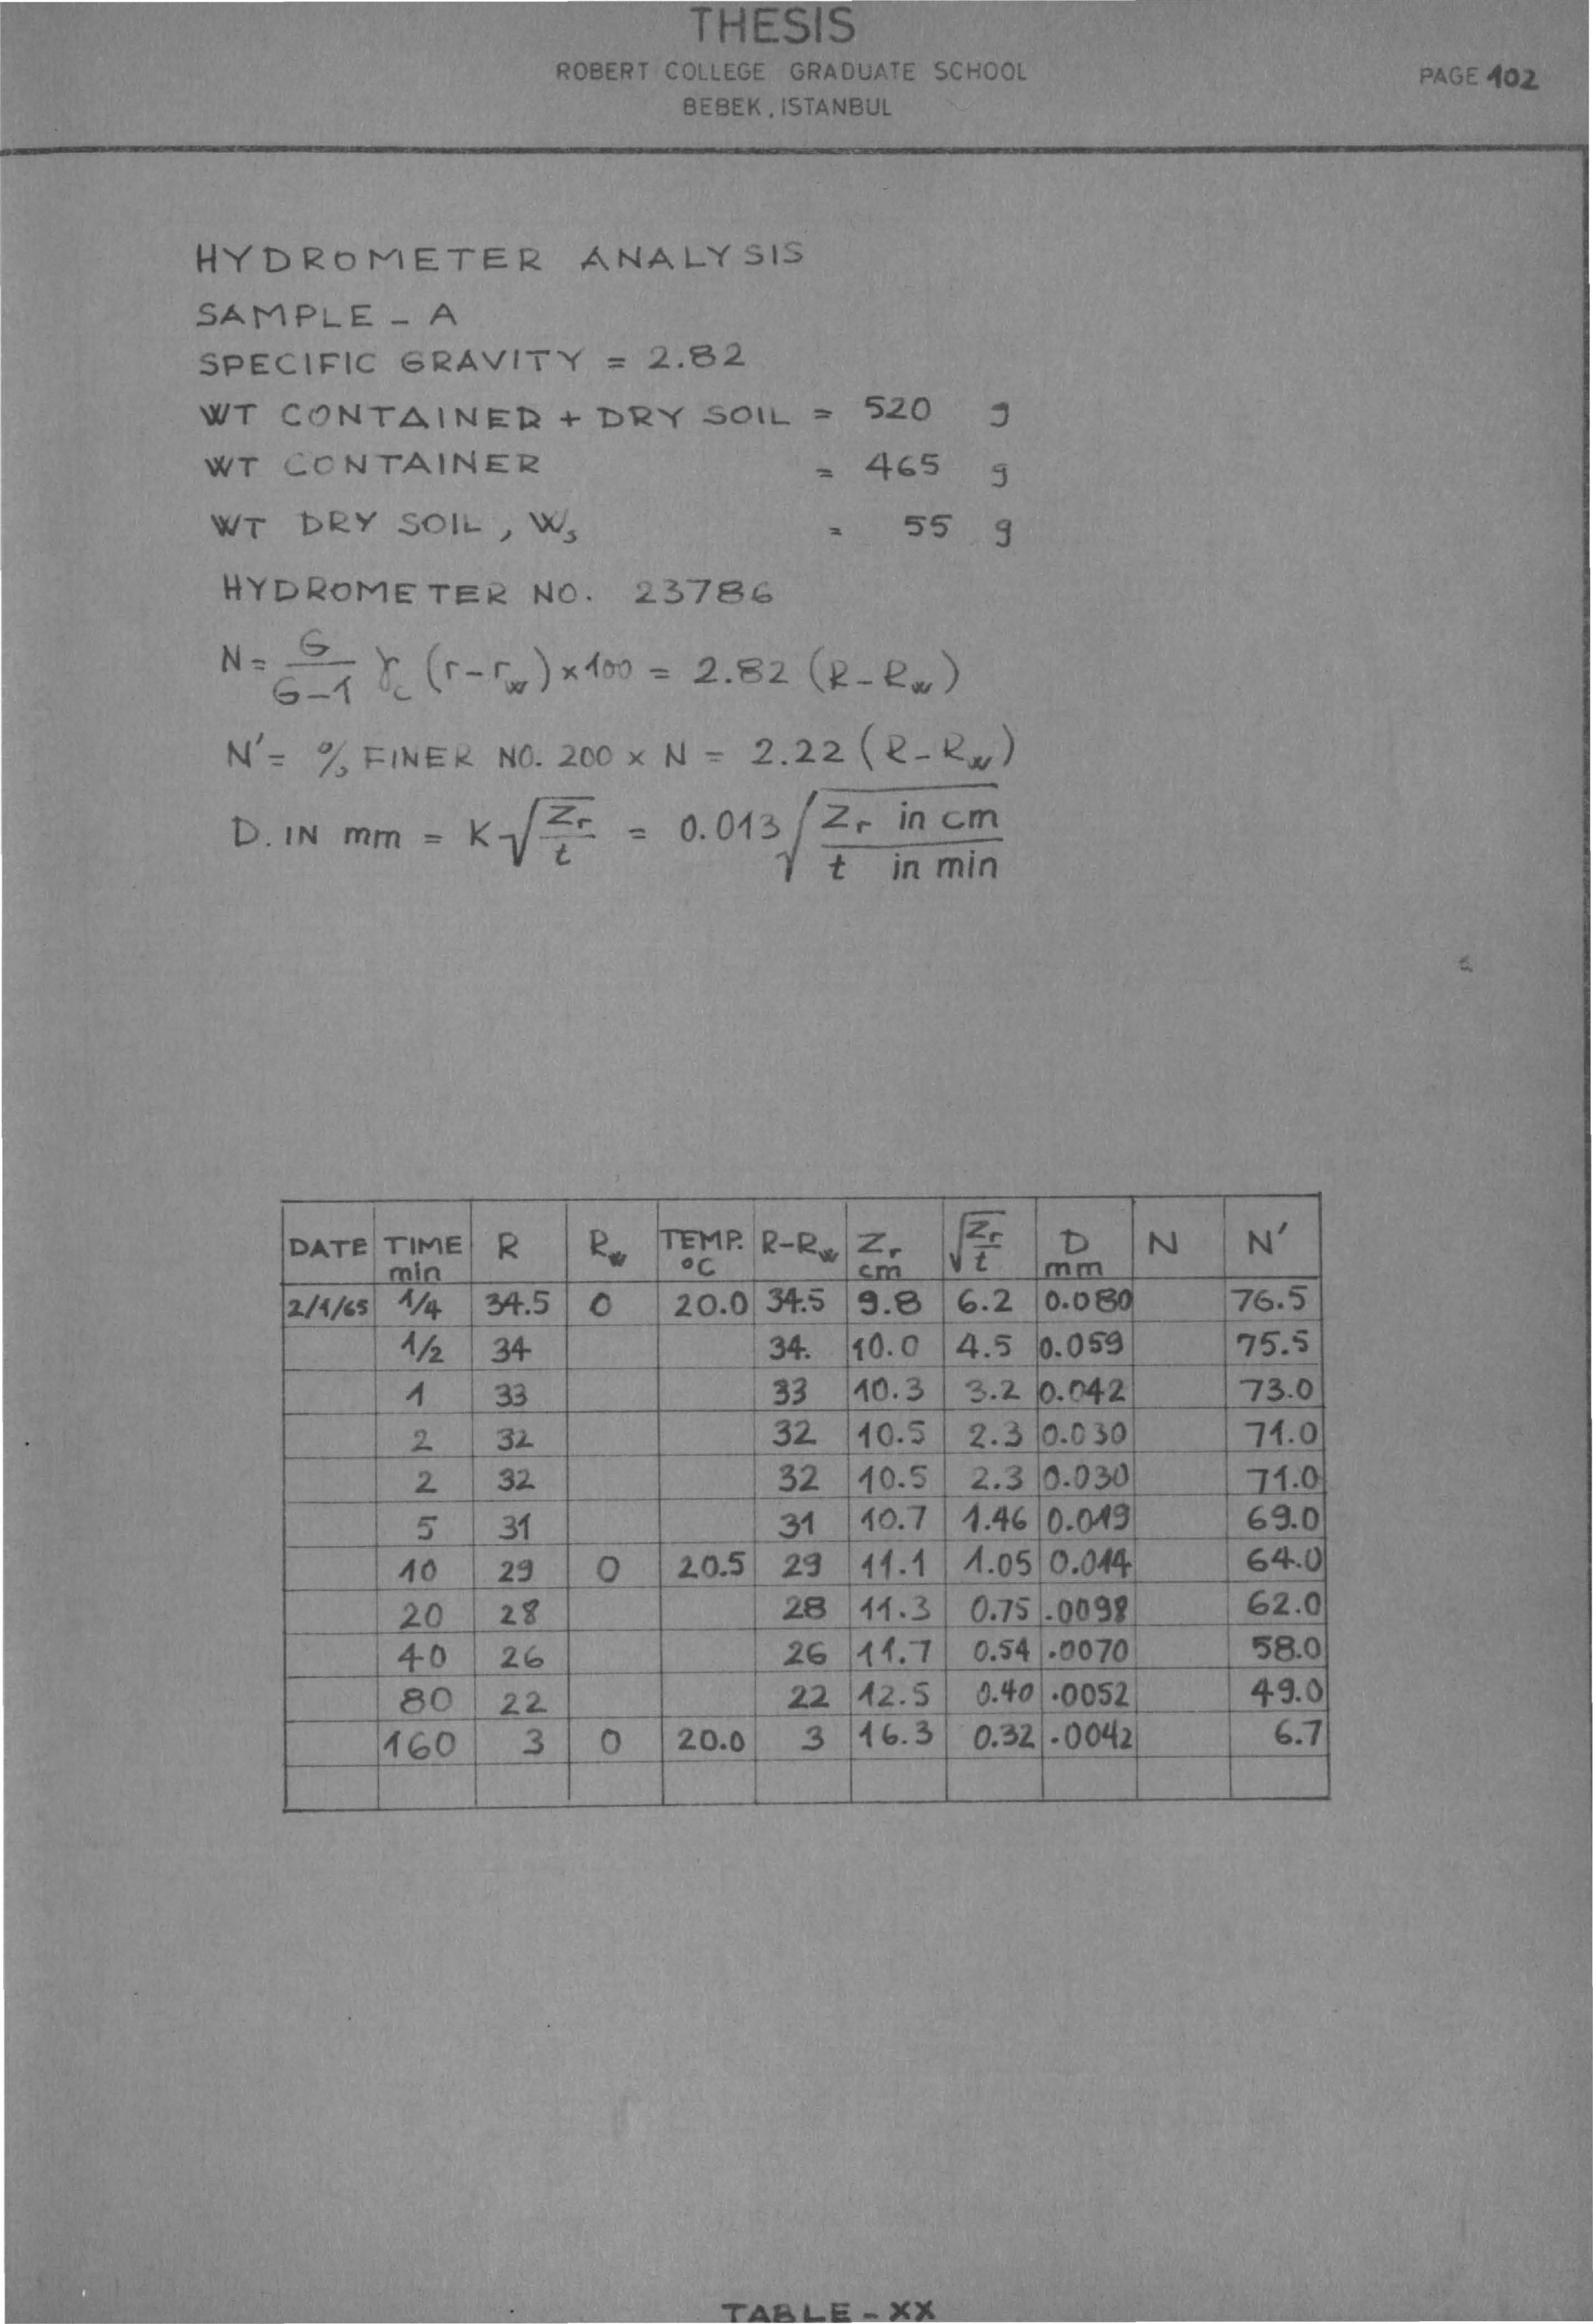 THESIS
ROBERT COLLEGE GRADUATE SCHOOL
BEBEK, ISTANBUL
PAGE 102
HYDROMETER ANALYSIS
SAMPLE - A
SPECIFIC GRAVITY = 2.82
WT CONTAINED + DRY SOIL = 520 g
WT CONTAINER = 465 g
WT DRY SOIL, Ws = 55 g
HYDROMETER NO. 23786
N = G/(G-1) γc (r-rw) x 100 = 2.82 (R-Rw)
N' = % FINER NO. 200 x N = 2.22 (R-Rw)
D. IN mm = K √(Zr/t) = 0.013 √(Zr in cm / t in min)
DATE TIME min R Rw TEMP. °C R-Rw Zr cm √(Zr/t) D mm N N'
2/1/65 1/4 34.5 0 20.0 34.5 9.8 6.2 0.080 76.5
1/2 34 34. 10.0 4.5 0.059 75.5
1 33 33 10.3 3.2 0.042 73.0
2 32 32 10.5 2.3 0.030 71.0
2 32 32 10.5 2.3 0.030 71.0
5 31 31 10.7 1.46 0.019 69.0
10 29 0 20.5 29 11.1 1.05 0.014 64.0
20 28 28 11.3 0.75 .0098 62.0
40 26 26 11.7 0.54 .0070 58.0
80 22 22 12.5 0.40 .0052 49.0
160 3 0 20.0 3 16.3 0.32 .0042 6.7
TABLE - XX